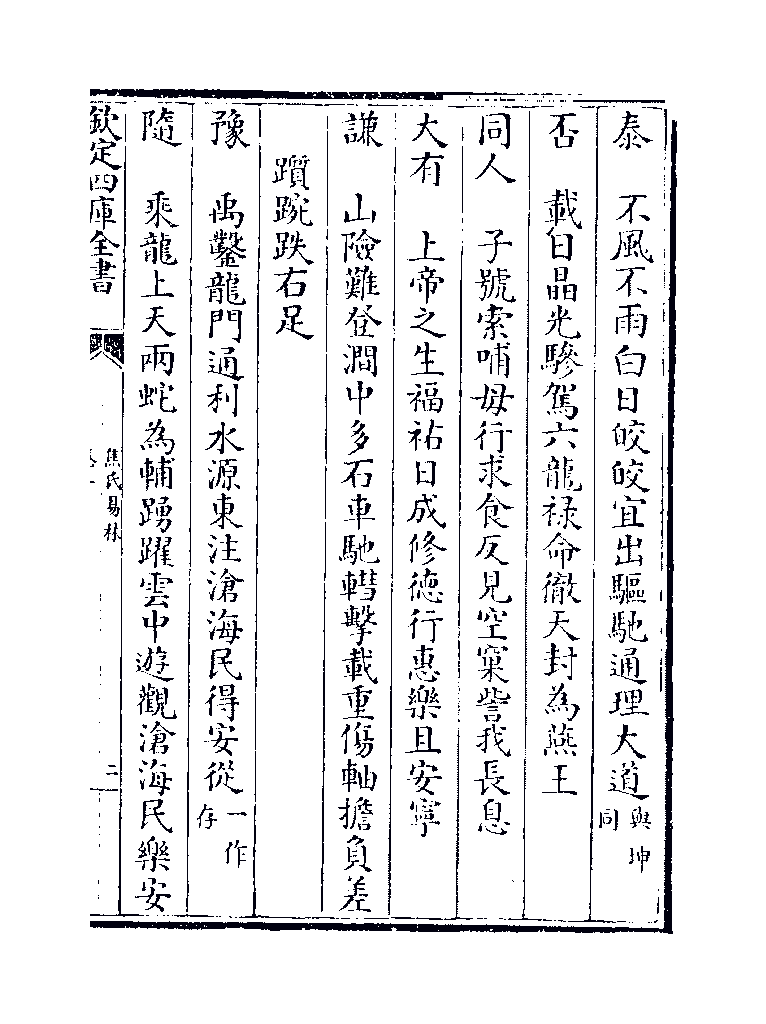 泰　不風不雨白日皎皎宜出驅馳通理大道與坤同
否　載日晶光驂駕六龍祿命徹天封為燕王
同人　子號索哺母行求食反見空窠訾我長息
大有　上帝之生福祐日成修德行惠樂且安寧
謙　山險難登澗中多石車馳轊擊載重傷軸擔負差
躓踠跌右足
豫　禹鑿龍門通利水源東注滄海民得安從一作存
隨　乘龍上天兩蛇為輔踴躍雲中遊觀滄海民樂安
欽定四庫全書
焦氏易林
二